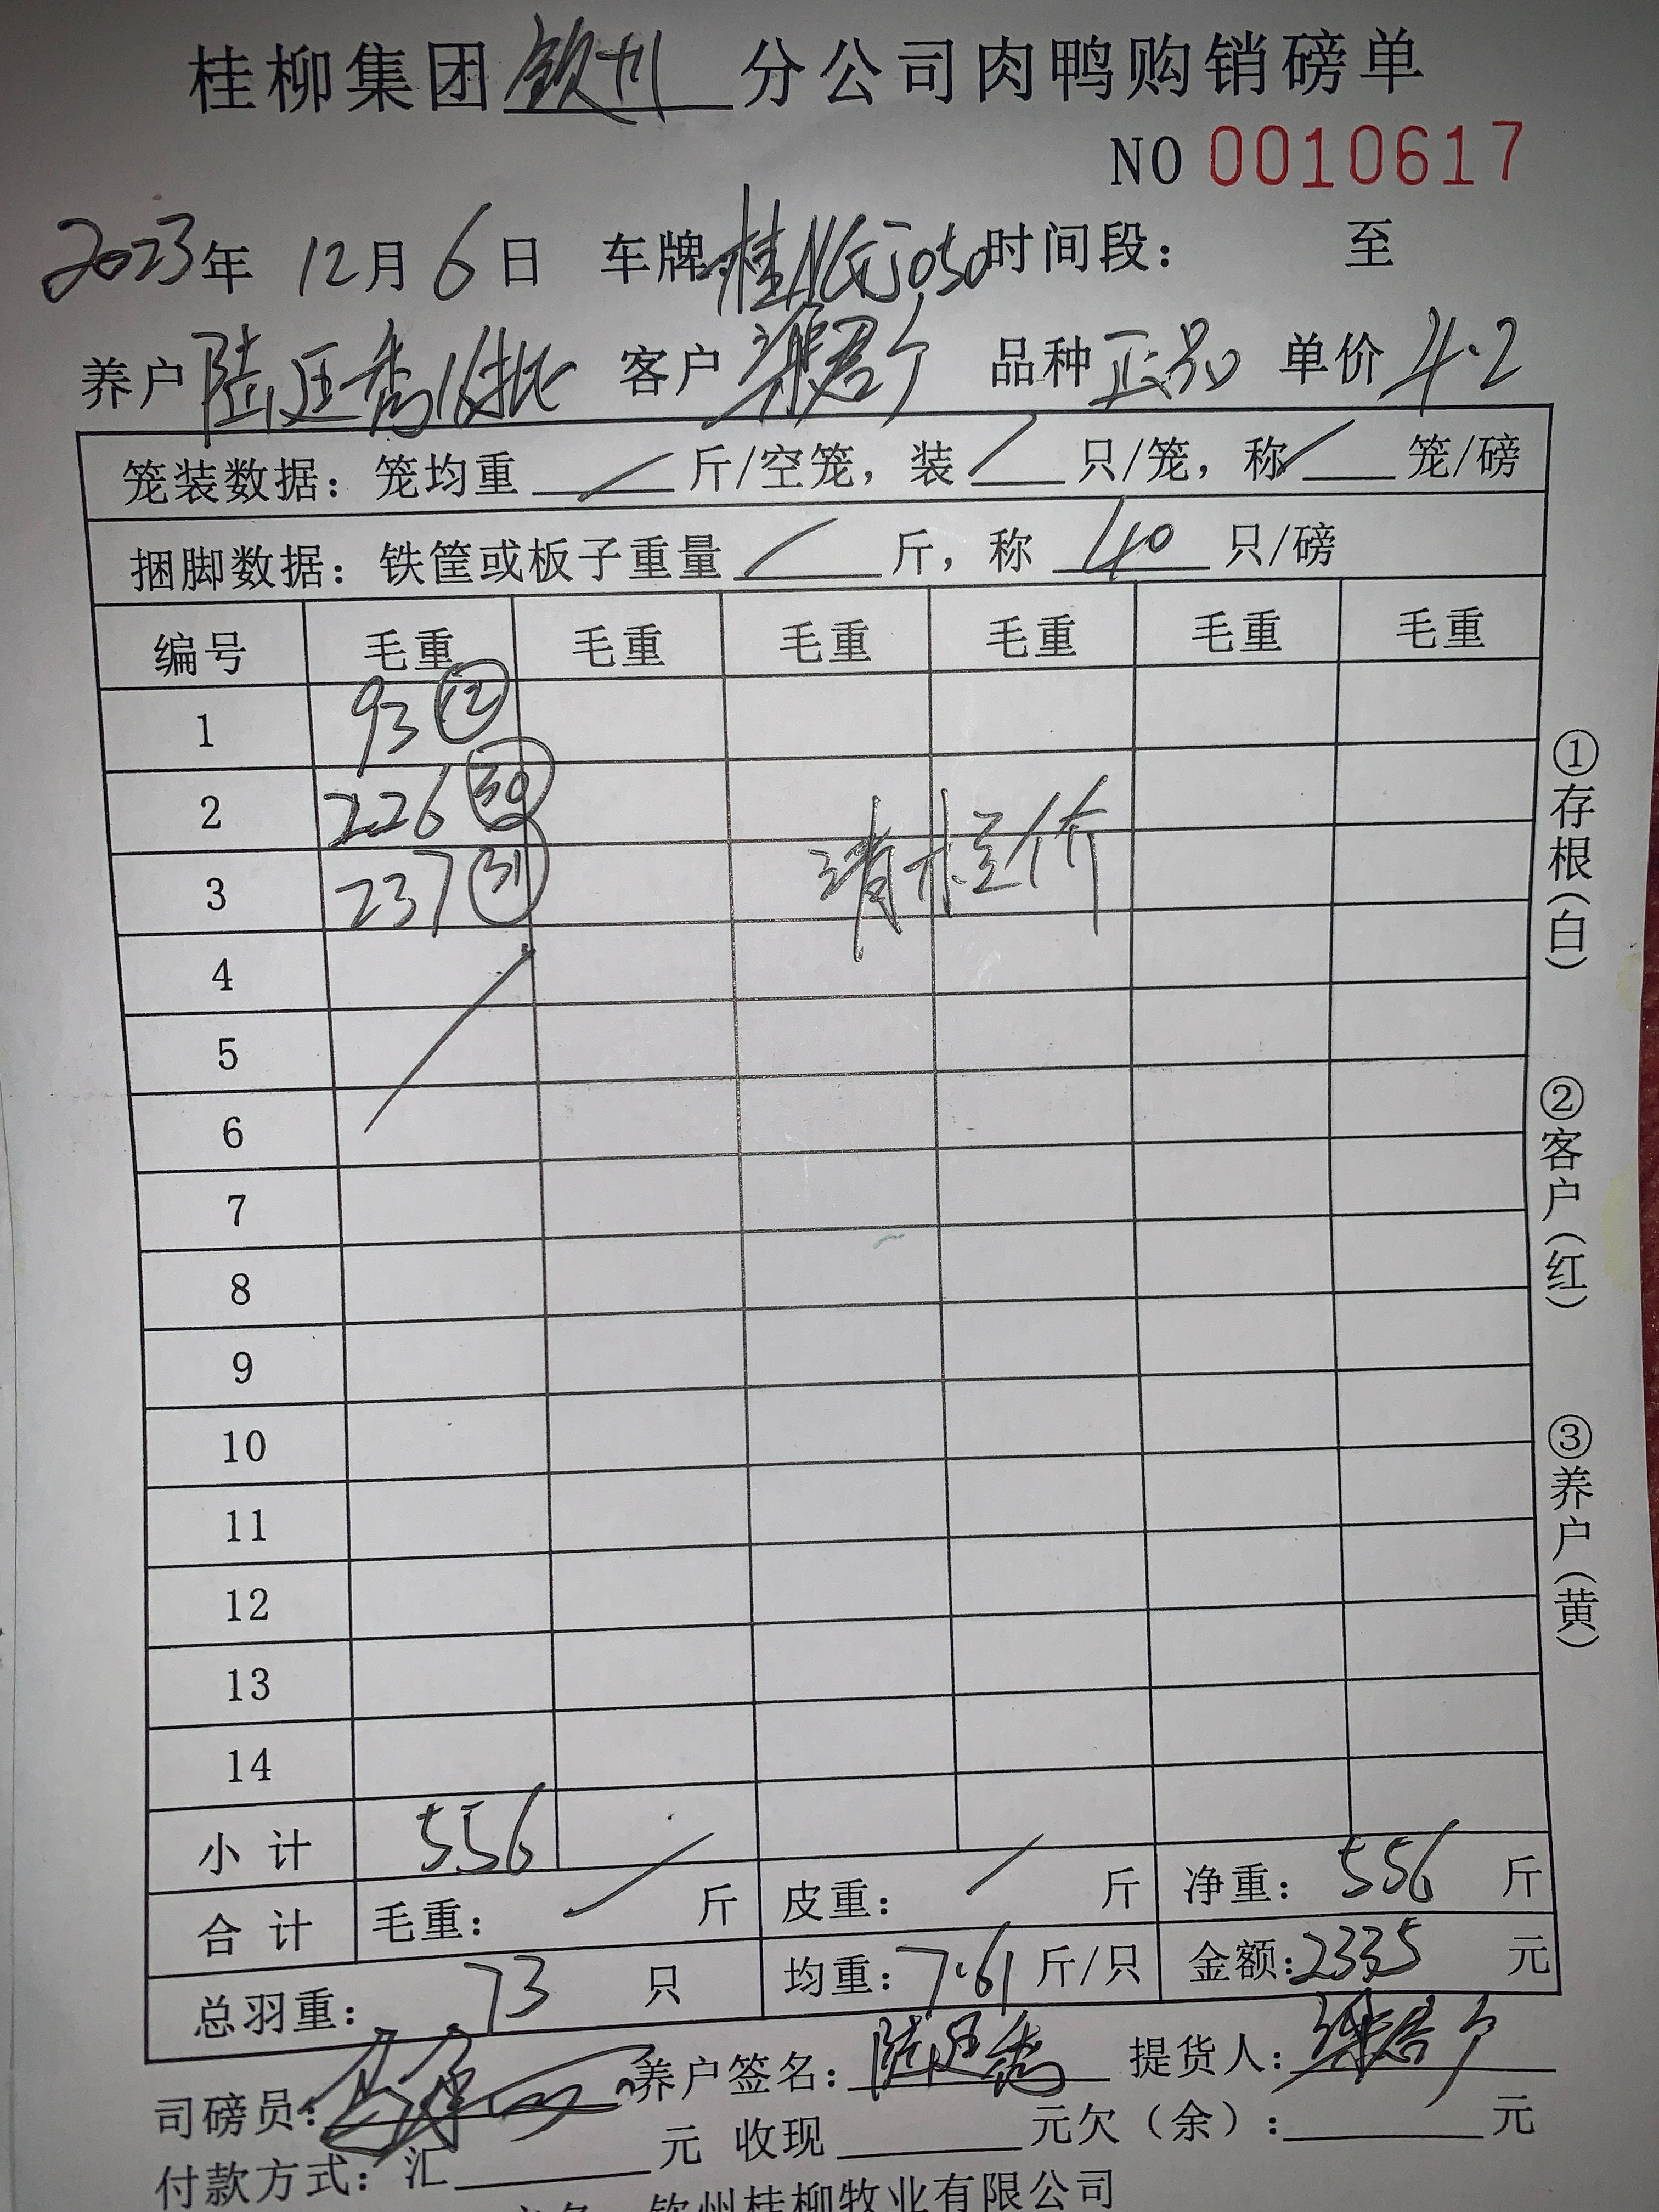 桂柳集团钦州分公司肉鸭购销磅单
NO 0010617
2023年 12月 6日 车牌 时间段: 至
养户 陆廷秀16批 客户 品种 正品 单价 4.2
笼装数据: 笼均重 / 斤/空笼, 装 / 只/笼, 称 / 笼/磅
捆脚数据: 铁筐或板子重量 / 斤, 称 40 只/磅
编号 毛重 毛重 毛重 毛重 毛重 毛重
1 93 ⑫
2 226 ㉚
3 237 ㉛
清栏价
4
5
6
7
8
9
10
11
12
13
14
小计 556
合计 毛重: / 斤 皮重: / 斤 净重: 556 斤
总羽重: 73 只 均重: 7.61 斤/只 金额: 2335 元
司磅员: 养户签名: 陆廷秀 提货人:
付款方式: 汇 元 收现 元欠(余): 元
钦州桂柳牧业有限公司
①存根(白)
②客户(红)
③养户(黄)